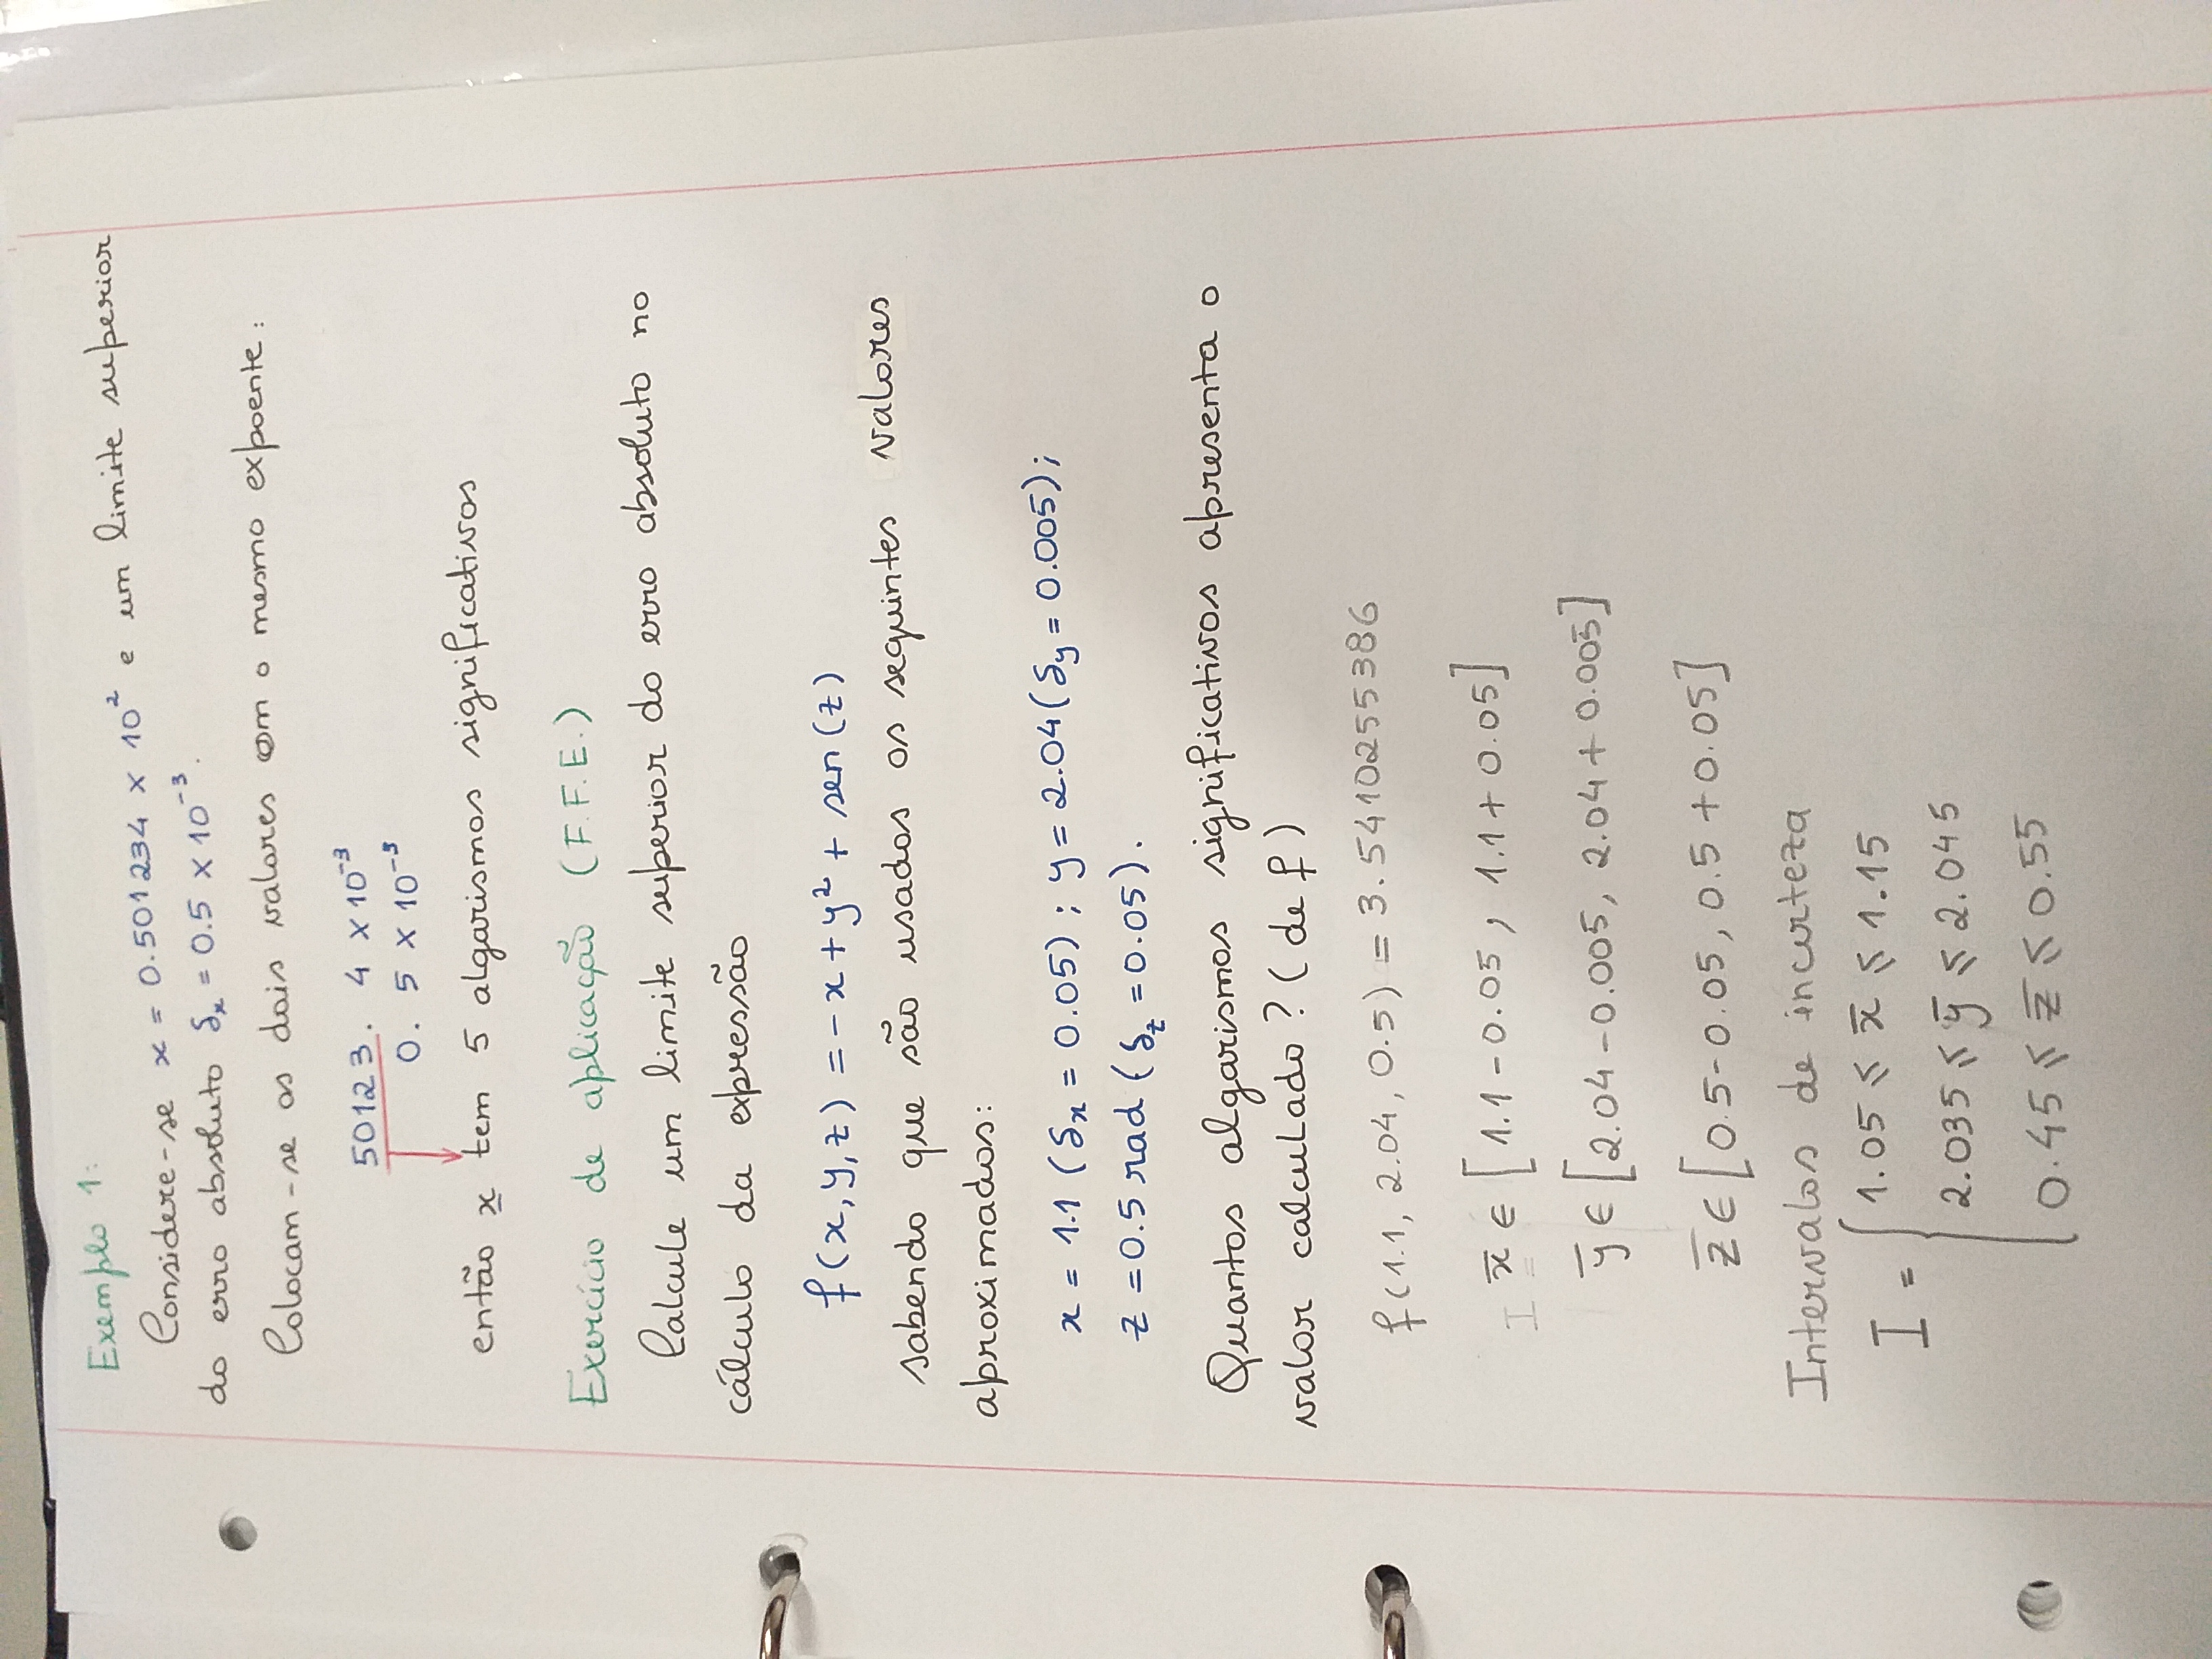 Exemplo 1:
Considere-se x = 0.501234 × 10² e um limite superior
do erro absoluto δₓ = 0.5 × 10⁻³.
Colocam-se os dois valores com o mesmo expoente:
50123. 4 × 10⁻³
0. 5 × 10⁻³
então x tem 5 algarismos significativos
Exercício de aplicação (F.F.E.)
Calcule um limite superior do erro absoluto no
cálculo da expressão
f(x,y,z) = -x + y² + sen(z)
sabendo que são usados os seguintes valores
aproximados:
x = 1.1 (δx = 0.05) ; y = 2.04 (δy = 0.005);
z = 0.5 rad (δz = 0.05).
Quantos algarismos significativos apresenta o
valor calculado? (de f)
f(1.1, 2.04, 0.5) = 3.5410255386
I x̅ ∈ [1.1 - 0.05, 1.1 + 0.05]
y̅ ∈ [2.04 - 0.005, 2.04 + 0.005]
z̅ ∈ [0.5 - 0.05, 0.5 + 0.05]
Intervalos de incerteza
I = { 1.05 ⩽ x̅ ⩽ 1.15
2.035 ⩽ y̅ ⩽ 2.045
0.45 ⩽ z̅ ⩽ 0.55